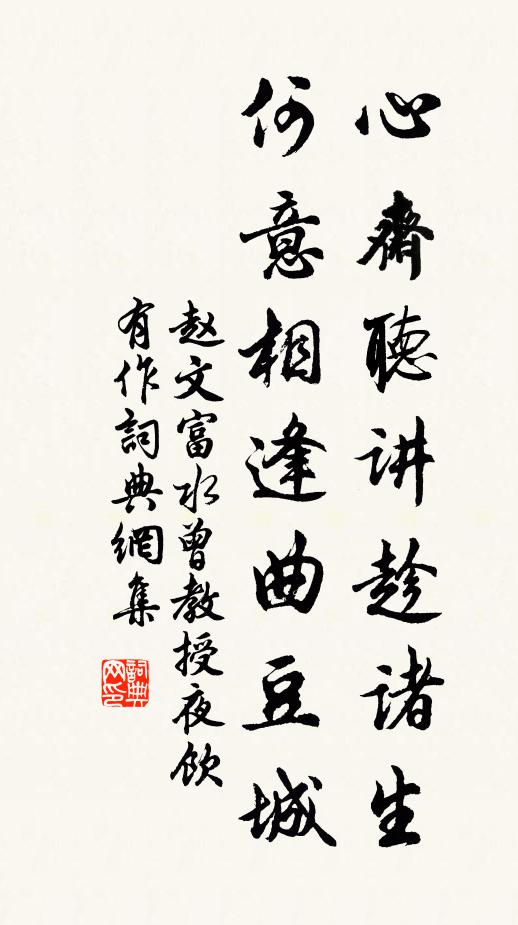 心齋聽讲趁诸生
何意相逢曲豆城
赵文富水曾教授夜饮
有作詞典網集
詞典网印